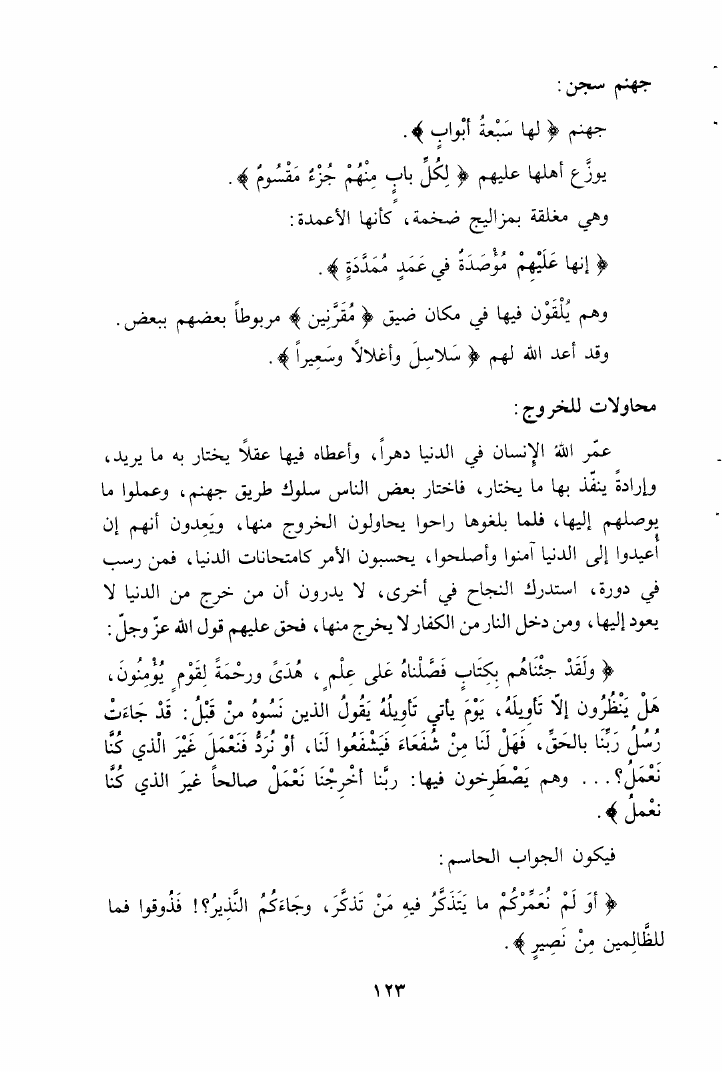 جهنم سجن :
جهنم ﴿ لها سَبْعةُ أبْوابٍ ﴾ .
يوزَّع أهلها عليهم ﴿ لِكُلِّ بابٍ مِنْهُمْ جُزْءٌ مَقْسُومٌ ﴾ .
وهي مغلقة بمزاليج ضخمة، كأنها الأعمدة:
﴿ إنها عَلَيْهِمْ مُؤْصَدَةٌ في عَمَدٍ مُمَدَّدَةٍ ﴾ .
وهم يُلْقَوْن فيها في مكان ضيق ﴿ مُقَرَّنِين ﴾ مربوطاً بعضهم ببعض .
وقد أعد الله لهم ﴿ سَلاسِلَ وأغلالًا وسَعِيراً ﴾ .
محاولات للخروج :
عمّر اللهُ الإنسان في الدنيا دهراً، وأعطاه فيها عقلًا يختار به ما يريد،
وإرادةً ينفّذ بها ما يختار، فاختار بعض الناس سلوك طريق جهنم، وعملوا ما
يوصلهم إليها، فلما بلغوها راحوا يحاولون الخروج منها، ويَعِدون أنهم إن
أُعيدوا إلى الدنيا آمنوا وأصلحوا، يحسبون الأمر كامتحانات الدنيا، فمن رسب
في دورة، استدرك النجاح في أخرى، لا يدرون أن من خرج من الدنيا لا
يعود إليها، ومن دخل النار من الكفار لا يخرج منها، فحق عليهم قول الله عزّ وجلّ :
﴿ ولَقَدْ جئْنَاهُم بِكِتَابٍ فَصَّلْناهُ عَلى عِلْمٍ ، هُدَىً ورحْمَةً لِقَوْمٍ يُؤْمِنُونَ،
هَلْ يَنْظُرُون إلّا تَأوِيلَهُ، يَوْمَ يأتي تَأوِيلُهُ يَقُولُ الذين نَسُوهُ منْ قَبْلُ: قَدْ جَاءَتْ
رُسُلُ رَبِّنَا بالحَقِّ، فَهَلْ لَنَا مِنْ شُفَعَاءَ فَيَشْفَعُوا لَنَا، أوْ نُرَدُّ فَنَعْمَلَ غَيْرَ الْذي كُنَّا
نَعْمَلُ؟... وهم يَصْطَرِخون فيها: ربَّنا أخْرِجْنَا نَعْمَلْ صالحاً غيرَ الذي كُنَّا
نعْملُ ﴾ .
فيكون الجواب الحاسم :
﴿ أوَ لَمْ نُعَمِّرْكُمْ ما يَتَذَكَّرُ فيهِ مَنْ تَذكَّرَ، وجَاءَكُمُ النَّذِيرُ؟! فَذُوقوا فما
للظَّالِمين مِنْ نَصِيرٍ ﴾ .
١٢٣